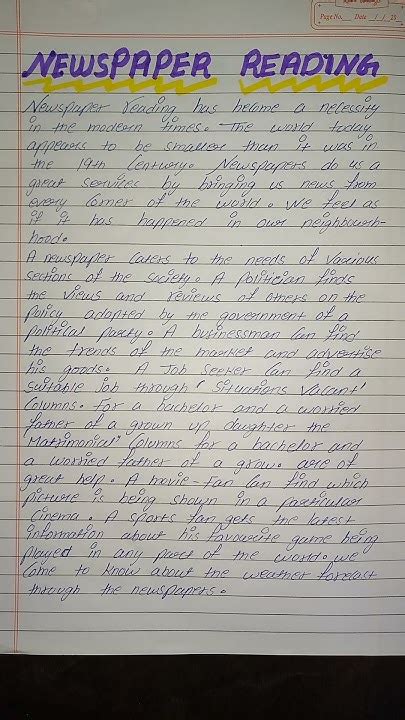 Page No. Date / / 23
NEWSPAPER READING
Newspaper reading has become a necessity
in the modern times. The world today
appears to be smaller than it was in
the 19th Century. Newspapers do us a
great services by bringing us news from
every corner of the world. We feel as
if it has happened in our neighbourh-
hood.
A newspaper caters to the needs of various
sections of the society. A Politician finds
the views and reviews of others on the
Policy adopted by the government of a
political party. A businessman can find
the trends of the market and advertise
his goods. A Job Seeker can find a
suitable job through 'Situations Vacant'
Columns. For a bachelor and a worried
father of a grown up daughter the
Matrimonial" Columns for a bachelor and
a worried father of a grow. are of
great help. A movie-fan can find which
picture is being shown in a particular
Cinema. A sports fan gets the latest
information about his favourite game being
played in any part of the world. we
Come to know about the weather forecast
through the newspapers.